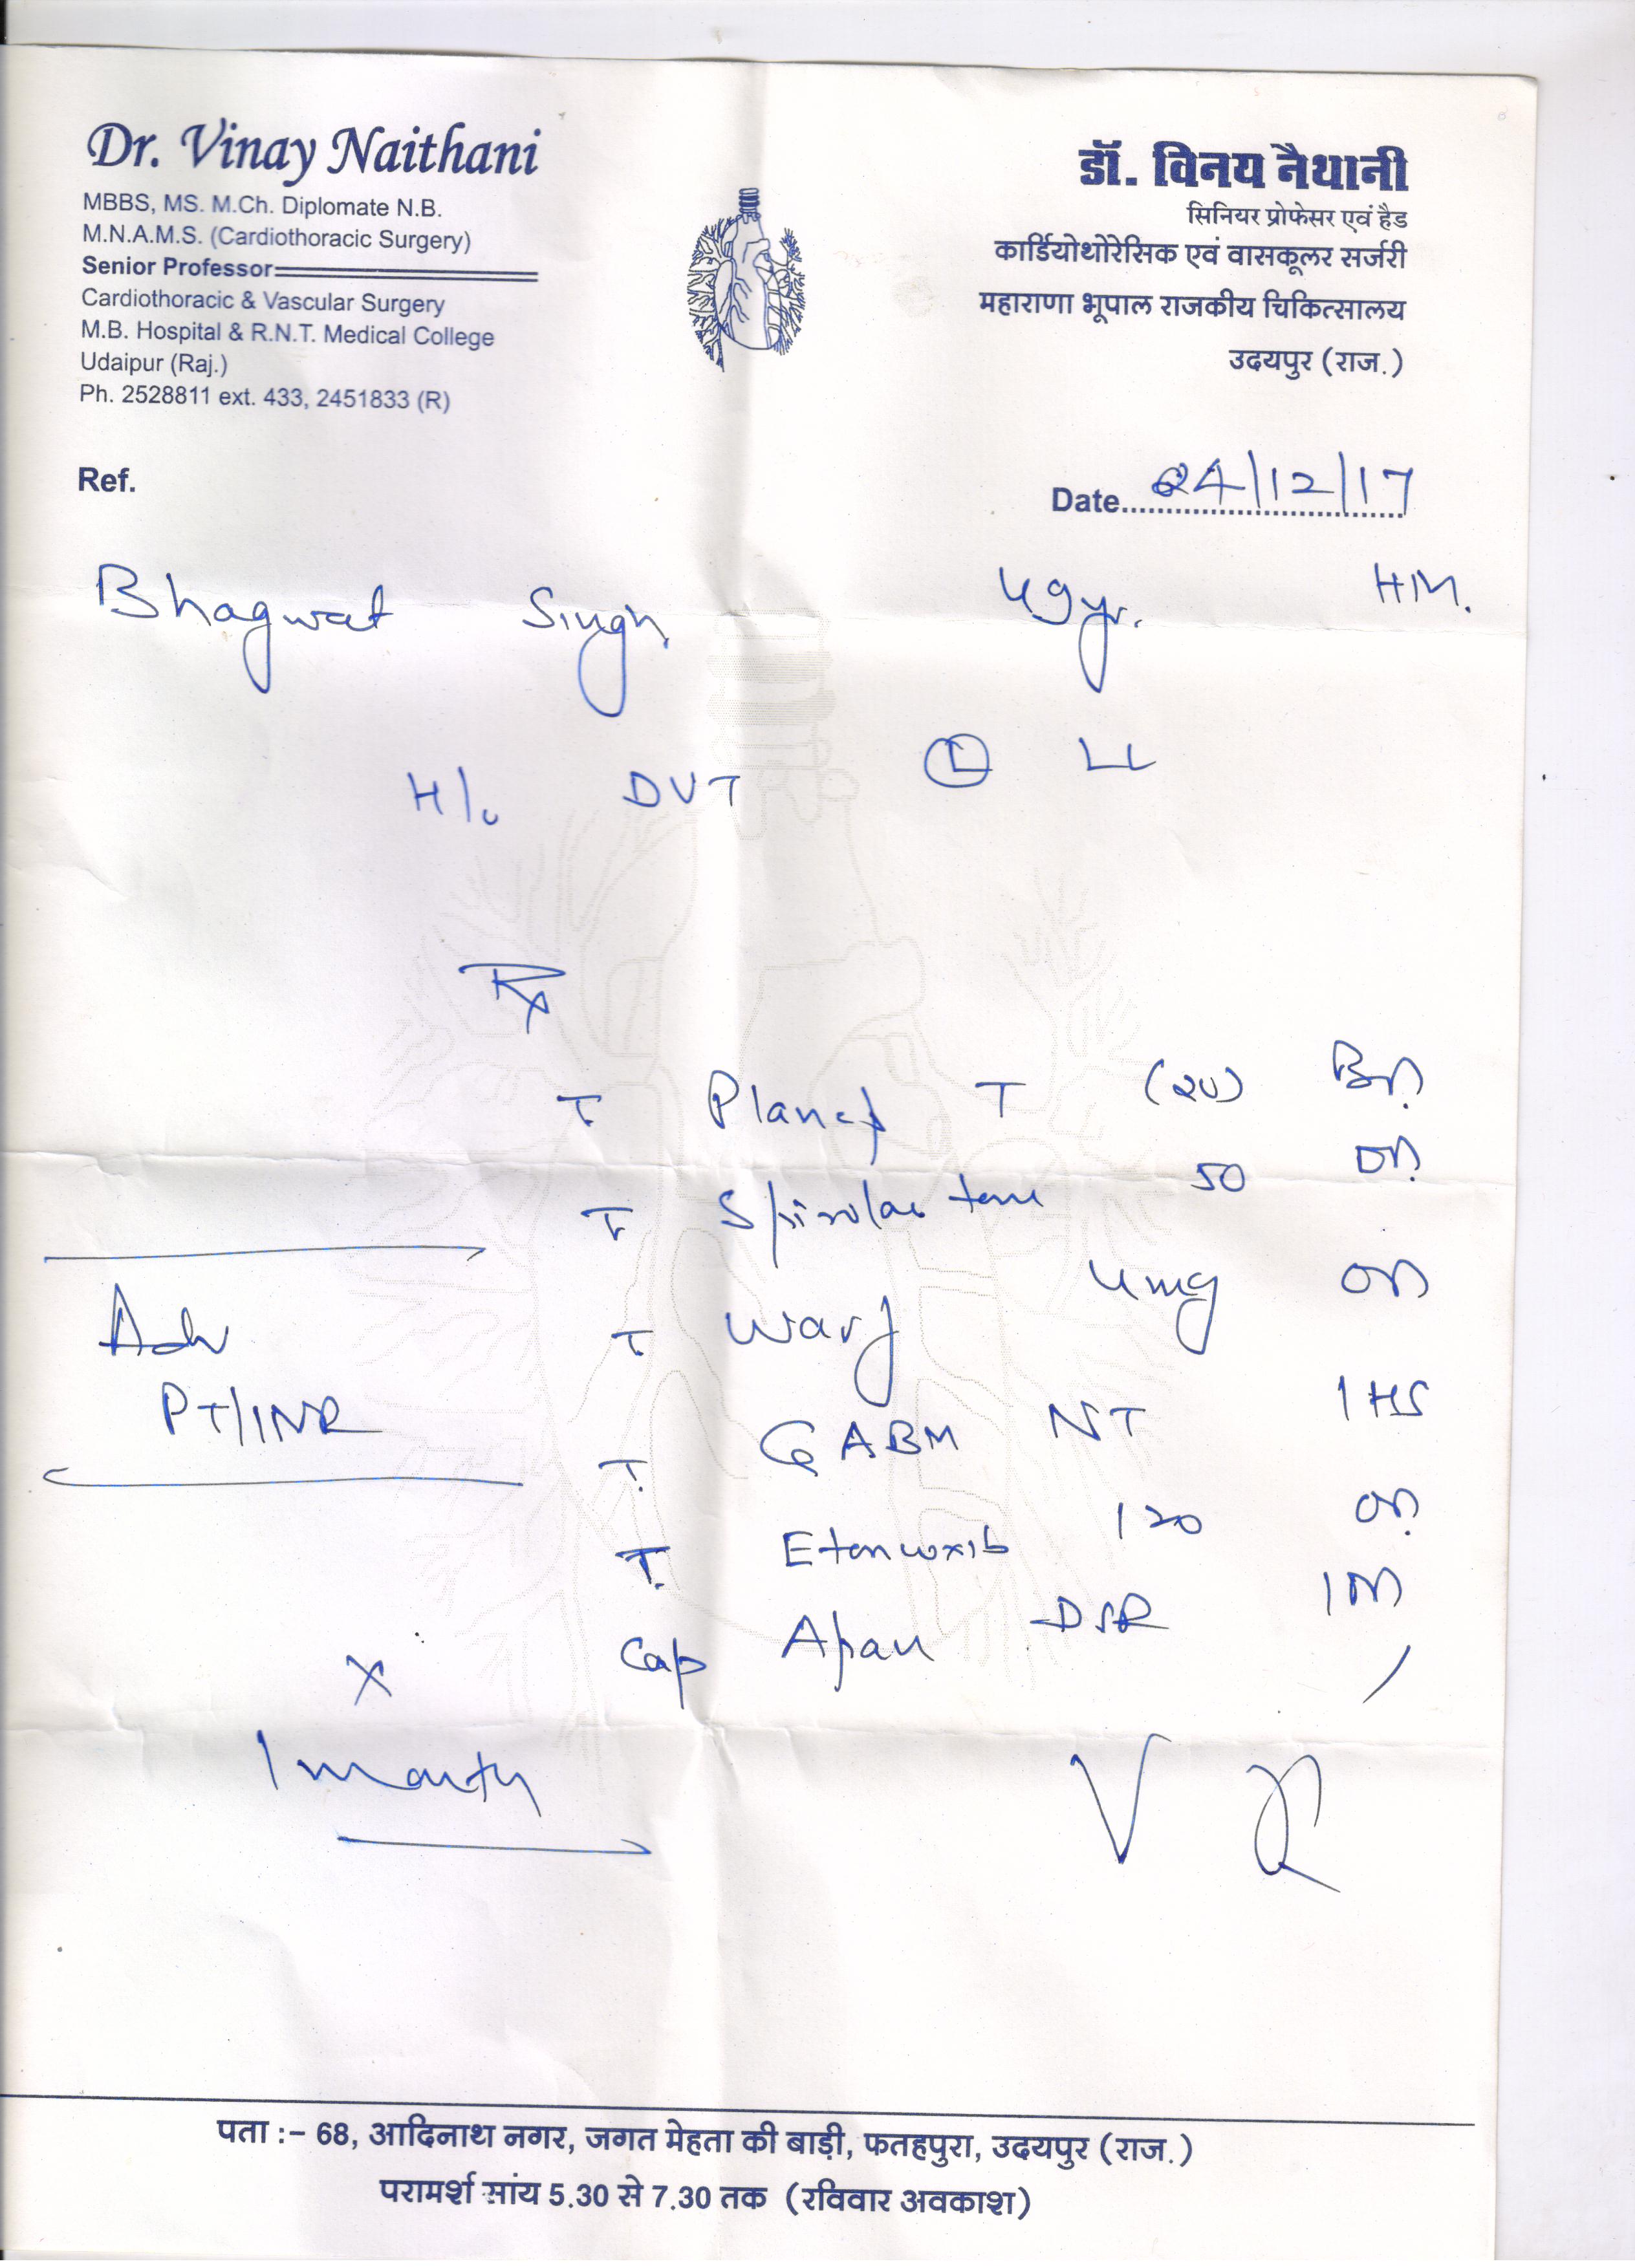 Dr. Vinay Naithani
MBBS, MS. M.Ch. Diplomate N.B.
M.N.A.M.S. (Cardiothoracic Surgery)
Senior Professor
Cardiothoracic & Vascular Surgery
M.B. Hospital & R.N.T. Medical College
Udaipur (Raj.)
Ph. 2528811 ext. 433, 2451833 (R)
डॉ. विनय नैथानी
सिनियर प्रोफेसर एवं हैड
कार्डियोथोरेसिक एवं वासकूलर सर्जरी
महाराणा भूपाल राजकीय चिकित्सालय
उदयपुर (राज.)
Ref.
Date 24/12/17
Bhagwat Singh 49yr. H/M.
H/o DVT Ⓛ LL
Rx
T. T
T. 50 OD
T. Warf 4mg OD
T. GABM NT 1 HS
T. Etoricoxib 120 OD
Cap DSR 1 OD
Adv
PT/INR
X
1 month
पता :- 68, आदिनाथ नगर, जगत मेहता की बाड़ी, फतहपुरा, उदयपुर (राज.)
परामर्श सांय 5.30 से 7.30 तक (रविवार अवकाश)